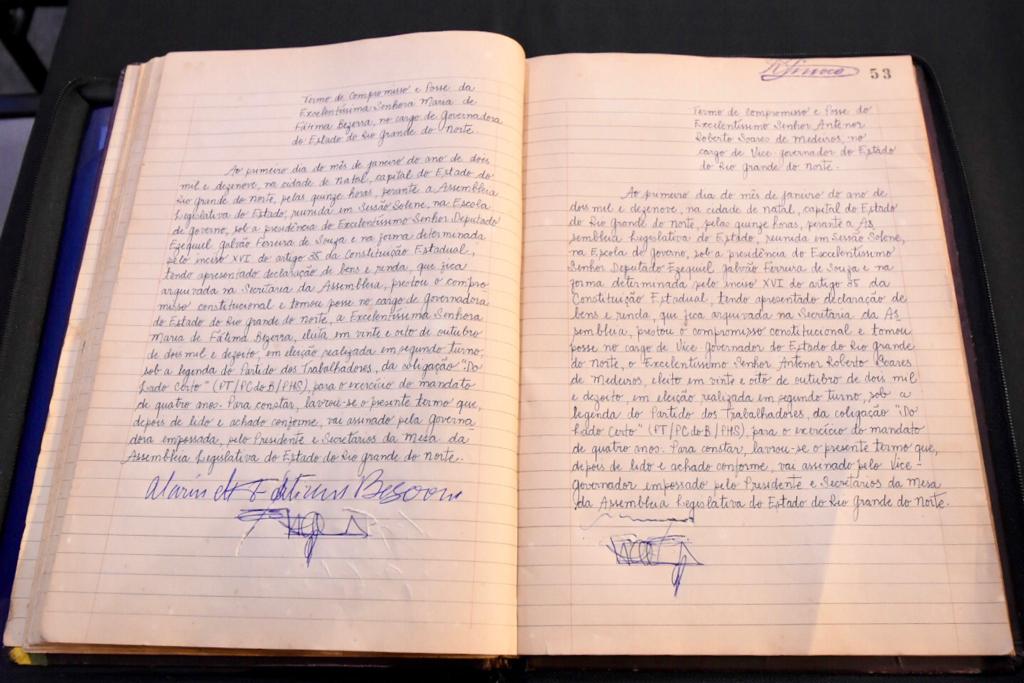 Termo de Compromisso e Posse da
Excelentíssima Senhora Maria de
Fátima Bezerra, no cargo de Governadora
do Estado do Rio Grande do Norte.
Ao primeiro dia do mês de janeiro do ano de dois
mil e dezenove, na cidade de Natal, capital do Estado do
Rio Grande do Norte, pelas quinze horas, perante a Assembleia
Legislativa do Estado, reunida em Sessão Solene, na Escola
de Governo, sob a presidência do Excelentíssimo Senhor Deputado
Ezequiel Galvão Ferreira de Souza e na forma determinada
pelo inciso XVI do artigo 35 da Constituição Estadual,
tendo apresentado declaração de bens e renda, que fica
arquivada na Secretaria da Assembleia, prestou o compro
misso constitucional e tomou posse no cargo de Governadora
do Estado do Rio Grande do Norte, a Excelentíssima Senhora
Maria de Fátima Bezerra, eleita em vinte e oito de outubro
de dois mil e dezoito, em eleição realizada em segundo turno,
sob a legenda do Partido dos Trabalhadores, da coligação "Do
Lado Certo" (PT/PCdoB/PHS), para o exercício do mandato
de quatro anos. Para constar, lavrou-se o presente termo que,
depois de lido e achado conforme, vai assinado pela Governa
dora empossada, pelo Presidente e Secretários da Mesa da
Assembleia Legislativa do Estado do Rio Grande do Norte.
53
Termo de Compromisso e Posse do
Excelentíssimo Senhor Antenor
Roberto Soares de Medeiros, no
cargo de Vice-governador do Estado
do Rio Grande do Norte.
Ao primeiro dia do mês de janeiro do ano de
dois mil e dezenove, na cidade de Natal, capital do Estado
do Rio Grande do Norte, pelas quinze horas, perante a As
sembleia Legislativa do Estado, reunida em Sessão Solene,
na Escola de Governo, sob a presidência do Excelentíssimo
Senhor Deputado Ezequiel Galvão Ferreira de Souza e na
forma determinada pelo inciso XVI do artigo 35 da
Constituição Estadual, tendo apresentado declaração de
bens e renda, que fica arquivada na Secretaria da As
sembleia, prestou o compromisso constitucional e tomou
posse no cargo de Vice-governador do Estado do Rio Grande
do Norte, o Excelentíssimo Senhor Antenor Roberto Soares
de Medeiros, eleito em vinte e oito de outubro de dois mil
e dezoito, em eleição realizada em segundo turno, sob a
legenda do Partido dos Trabalhadores, da coligação "Do
Lado Certo" (PT/PCdoB/PHS), para o exercício do mandato
de quatro anos. Para constar, lavrou-se o presente termo que,
depois de lido e achado conforme, vai assinado pelo Vice-
governador empossado pelo Presidente e Secretários da Mesa
da Assembleia Legislativa do Estado do Rio Grande do Norte.